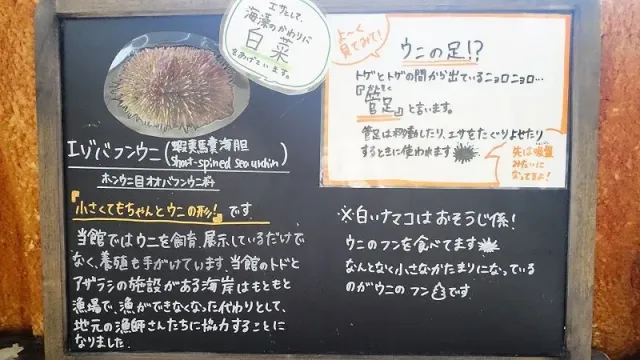 エサとして、
海藻のかわりに
白菜
をあげています。
エゾバフンウニ(蝦夷馬糞海胆
Short-spined sea urchin)
ホンウニ目オオバフンウニ科
『小さくてもちゃんとウニの形!』です。
当館ではウニを飼育、展示しているだけで
なく、養殖も手がけています。当館のトドと
アザラシの施設がある海岸はもともと
漁場で、漁ができなくなった代わりとして、
地元の漁師さんたちに協力することに
なりました。
よ〜く
見てみて!
ウニの足!?
トゲとトゲの間から出ているニョロニョロ…
『管足』と言います。
管足は移動したり、エサをたぐりよせたり
するときに使われます
先は吸盤
みたいに
なってるよ!
※白いナマコはおそうじ係!
ウニのフンを食べてます
なんとなく小さなかたまりになっている
のがウニのフンです